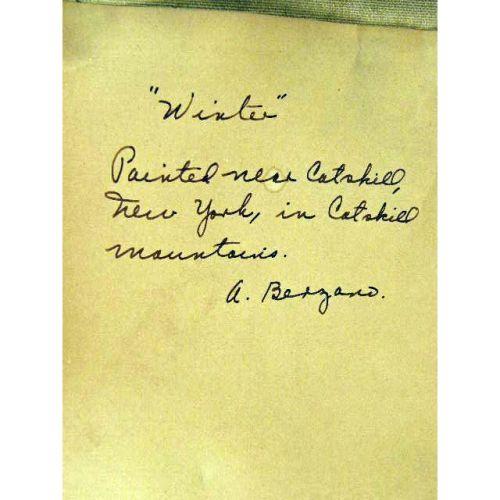 "Winter"
Painted near Catskill,
New York, in Catskill
mountains.
A. Berzano.